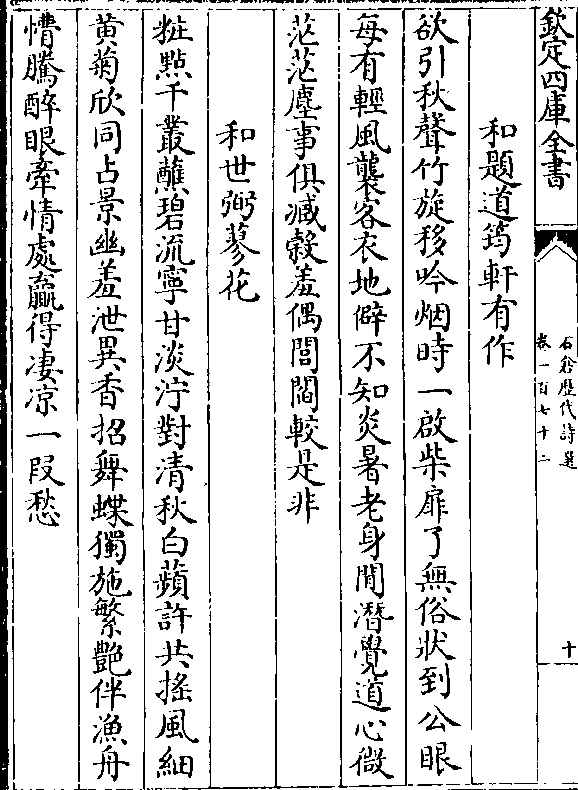 欽定四庫全書
石倉歷代詩選
卷一百七十二
十
和題道筠軒有作
欲引秋聲竹旋移吟烟時一啟柴扉了無俗狀到公眼
每有輕風襲客衣地僻不知炎暑老身閒潛覺道心微
茫茫塵事俱臧榖羞偶閭閻較是非
和世弼蓼花
粧㸃千叢蘸碧流寧甘淡泞對清秋白蘋許共搖風細
黄菊欣同占景幽羞泄異香招舞蝶獨施繁艶伴漁舟
懵騰醉眼牽情處贏得凄凉一段愁